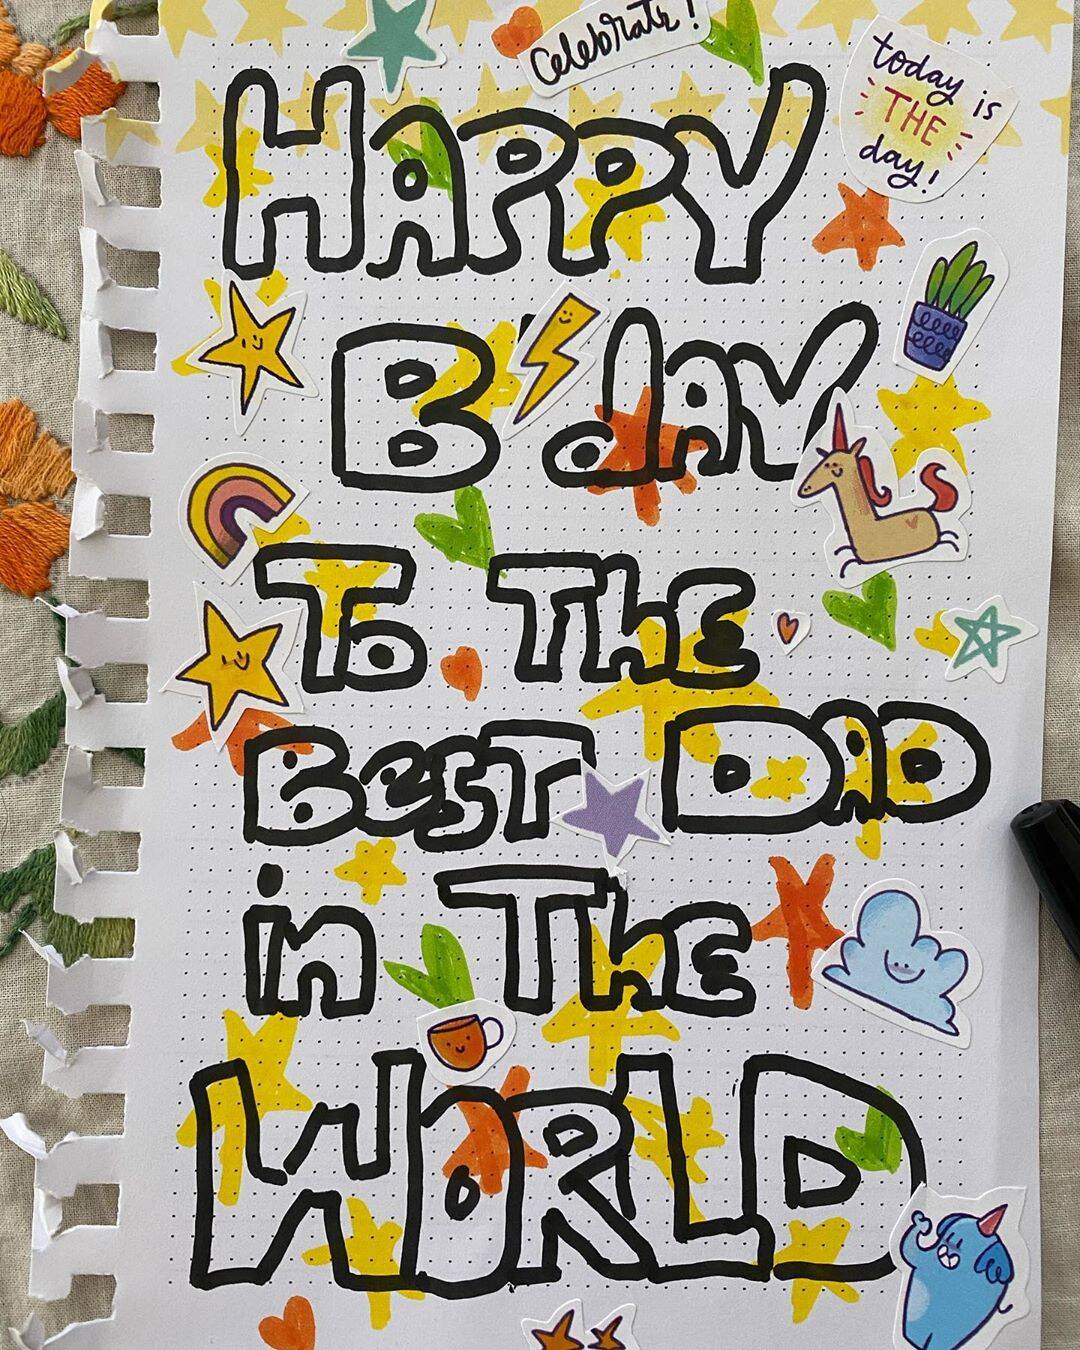 Celebrate!
today is
THE
day!
HAPPY
B'dAY
To ThE
BeST DAD
in ThE
WORLD